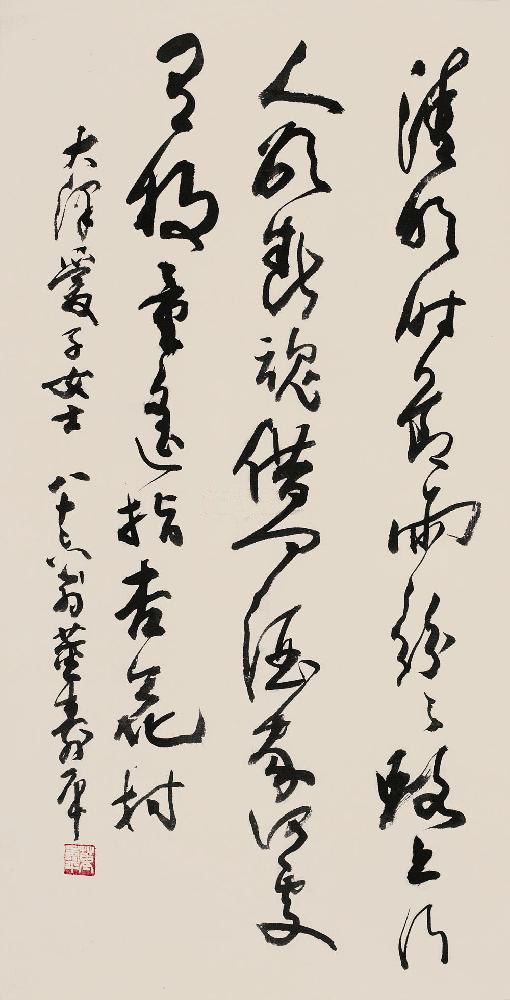 清明时节雨纷々路上行
人欲断魂借问酒家何处
有牧童遥指杏花村
大泽爱子女士 八十六翁董寿平